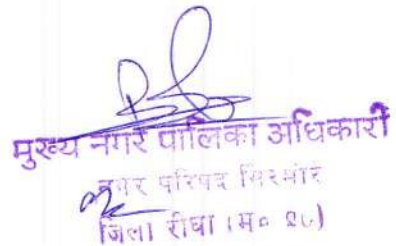 मुख्य नगर पालिका अधिकारी
नगर परिषद सिरमौर
जिला रीवा (म० प्र०)